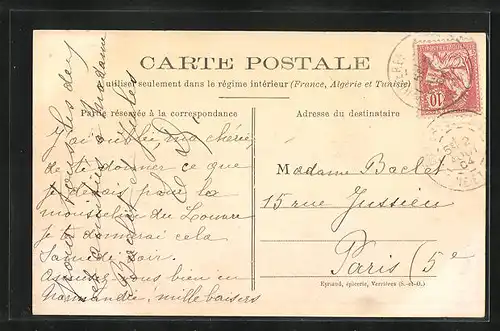 CARTE POSTALE
à utiliser seulement dans le régime intérieur (France, Algérie et Tunisie)
Partie réservée à la correspondance
Adresse du destinataire
J'ai oublié, ma chérie,
de te donner ce que
je devais pour la
mousseline du Louvre
je te donnerai cela
Samedi soir.
Amusez-vous bien en
Normandie, mille baisers
pour tous les deux
et amitiés à Madame
Baclet et Jules
Madame Baclet
15 rue Jussieu
Paris (5e
Eyraud, épicerie, Verrières (S.-et-O.)
10